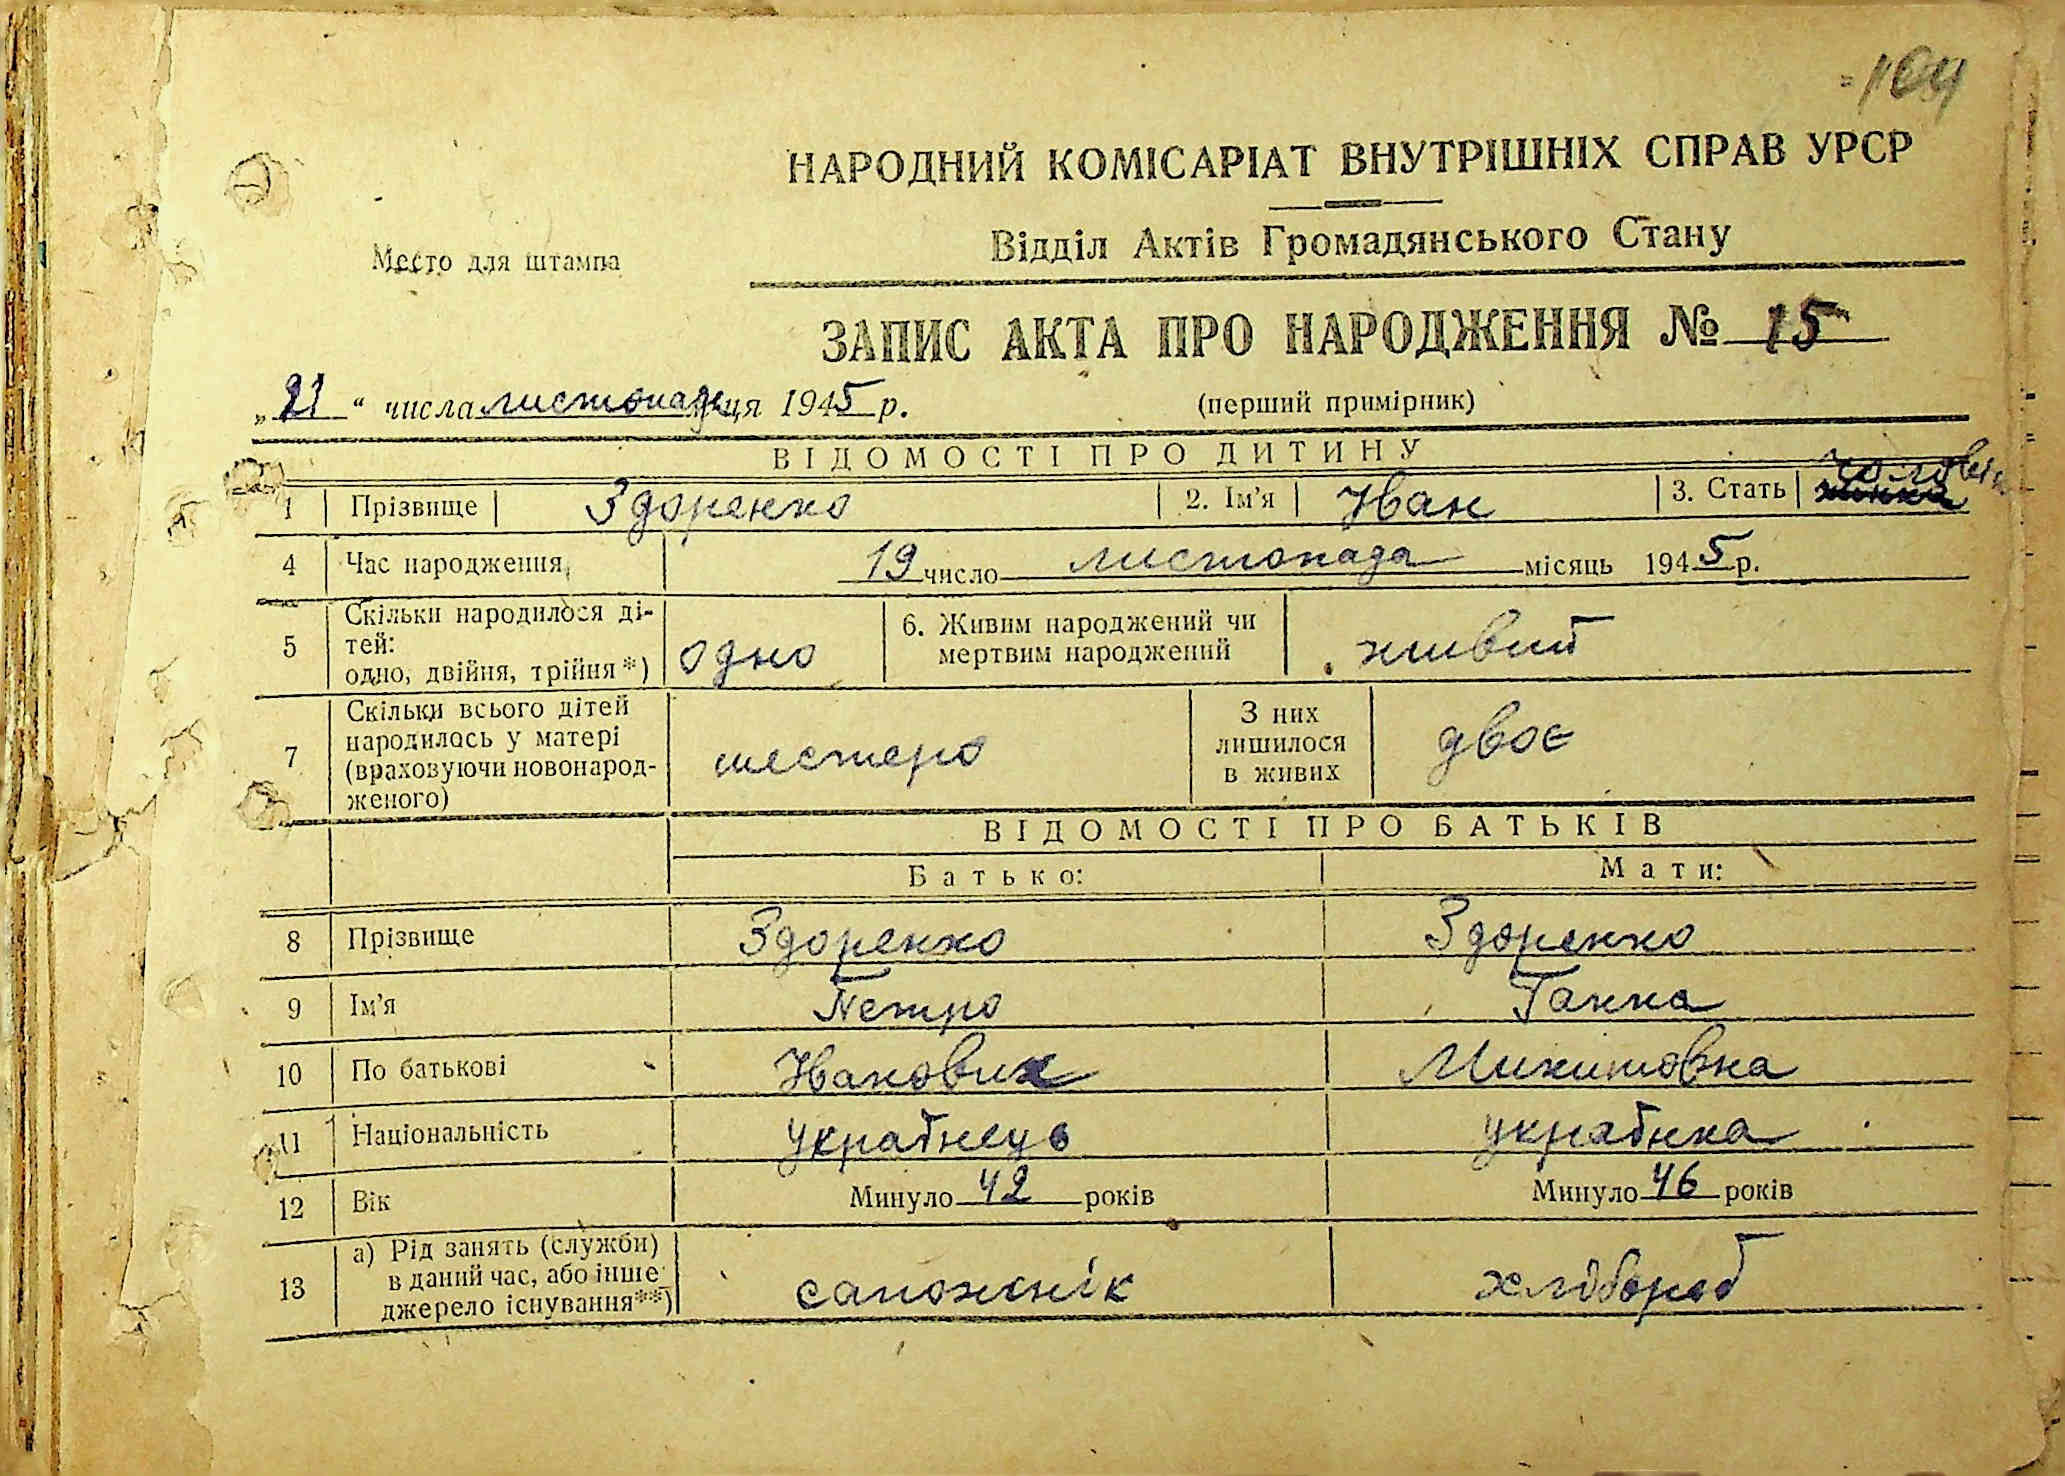 164
НАРОДНИЙ КОМІСАРІАТ ВНУТРІШНІХ СПРАВ УРСР
Відділ Актів Громадянського Стану
Место для штампа
ЗАПИС АКТА ПРО НАРОДЖЕННЯ № 15
„21“ числа листопада ця 1945 р. (перший примірник)
ВІДОМОСТІ ПРО ДИТИНУ
1 Прізвище Здоренко 2. Ім'я Іван 3. Стать жінка чоловік
4 Час народження 19 число листопада місяць 1945 р.
5 Скільки народилося ді-
тей:
одно, двійня, трійня*) одно 6. Живим народжений чи
мертвим народжений живий
7 Скільки всього дітей
народилось у матері
(враховуючи новонарод-
женого) шестеро З них
лишилося
в живих двоє
ВІДОМОСТІ ПРО БАТЬКІВ
Батько: Мати:
8 Прізвище Здоренко Здоренко
9 Ім'я Петро Ганна
10 По батькові Іванович Микитовна
11 Національність українець українка
12 Вік Минуло 42 років Минуло 46 років
13 а) Рід занять (служби)
в даний час, або інше
джерело існування**) сапожнік хлібороб